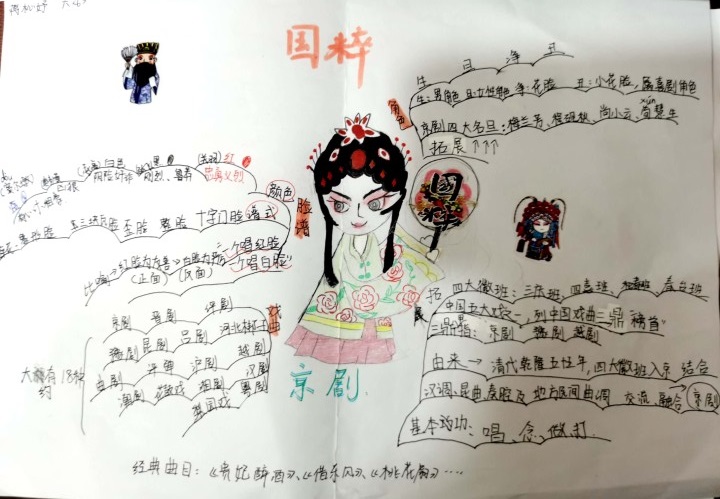 国粹
生 旦 净 丑
生:男角色 旦:女性角色 净:花脸 丑:小花脸,属喜剧角色
角色
xún
京剧四大名旦:梅兰芳、程砚秋、尚小云、荀慧生
拓展↑↑↑
国粹
(关羽)红
忠勇义烈
颜色
脸谱
十字门脸 谱式
比喻→红脸为友善→白脸为
(正面) (反面)
一个唱红脸
一个唱白脸"
京剧 晋剧 评剧
豫剧 昆剧 吕剧 河北梆子
曲剧 沪剧 越剧
潮剧 湘剧 汉剧
粤剧
戏曲
大概有18种
约
京剧
拓展
四大徽班:三庆班 四喜班 和春班 春台班
中国五大戏曲之一,列中国戏曲三鼎"榜首"
三鼎指:京剧 豫剧 越剧
由来→清代乾隆五十五年,四大徽班入京 结合
汉调、昆曲、秦腔及地方民间曲调 交流、融合→京剧
基本功:唱、念、做、打
经典曲目:《贵妃醉酒》、《借东风》、《桃花扇》....